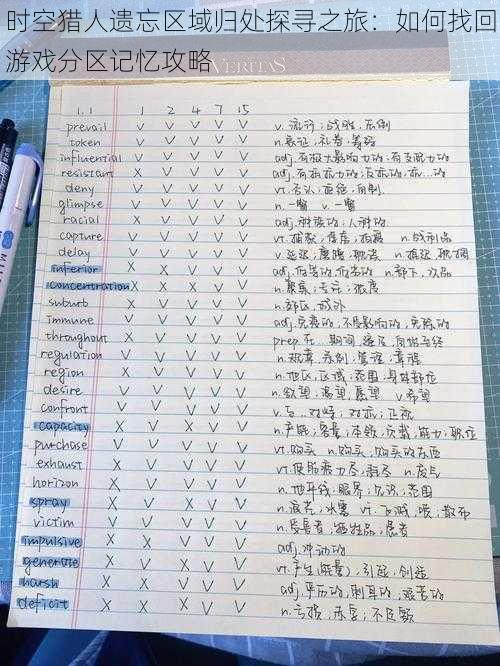 时空猎人遗忘区域归处探寻之旅：如何找回
游戏分区记忆攻略
VERITAS
1.1 1 2 4 7 15
prevail V V V V V v. 流行；战胜；压倒
token V V V V V n. 表征；礼券；筹码
influential V V V V V adj. 有极大影响力的；有支配力的
resistant X V V V V adj. 有抵抗力的；反抗的；抗…的
deny V V V V V vt. 否认；拒绝；自制
glimpse V V V V V n. 一瞥 v. 一瞥
racial X V V V V adj. 种族的；人种的
capture V V V V V vt. 捕获；俘虏；拍摄 n. 战利品
delay V V V V V v. 延迟；耽搁
inferior X X V V V adj. n. 部下，次品
concentration X X X V V n. 聚集；专注；浓度
suburb X X V V V n. 郊区，城外
immune V V V V V adj. 免疫的；不受影响的；免除的
throughout V X V V V prep. 在…期间，遍及
regulation V V V V V n. 规章；条例；管理；
region X V V V V n. 地区，区域；范围；身体部位
desire V V V V V n. 欲望；渴望，愿望 v. 希望
confront V V V V V v. 与…对峙；对抗；正视
capacity X V X V V n. 产能；容量；本领；负载，能力；职位
purchase V V V V V vt. 购买 n. 购买，购买的东西
exhaust X V V V V vt. 使筋疲力尽；耗尽 n. 废气
horizon X V V V V n. 地平线；眼界，范围
spray X V X V V n. 浪花；水雾 vt. 喷；散布
victim X V V V V n. 受害者，牺牲品，患者
impulsive X X V V V adj. 冲动的
generate X V X V V vt. 产生(能量)，引起，创造
harsh X X V V V adj. 严厉的，刺耳的，艰苦的
deficit X X V V V n. 亏损，赤字；不足额